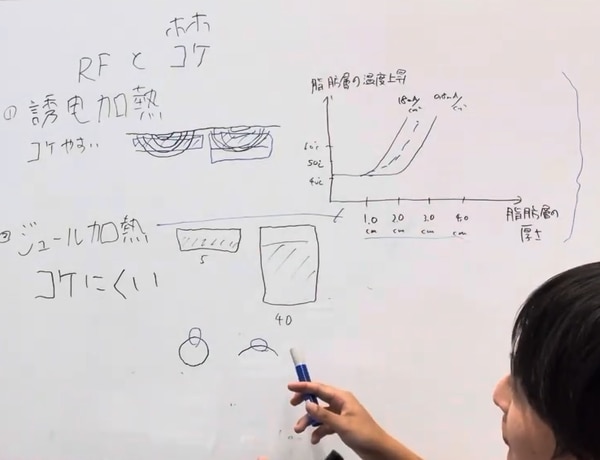 RFとホホ
コケ
① 誘电加熱
コケやすい
② ジュール加熱
コケにくい
5
40
脂肪層の温度上昇
60℃
50℃
40℃
1.0 cm
2.0 cm
3.0 cm
4.0 cm
脂肪層の
厚さ